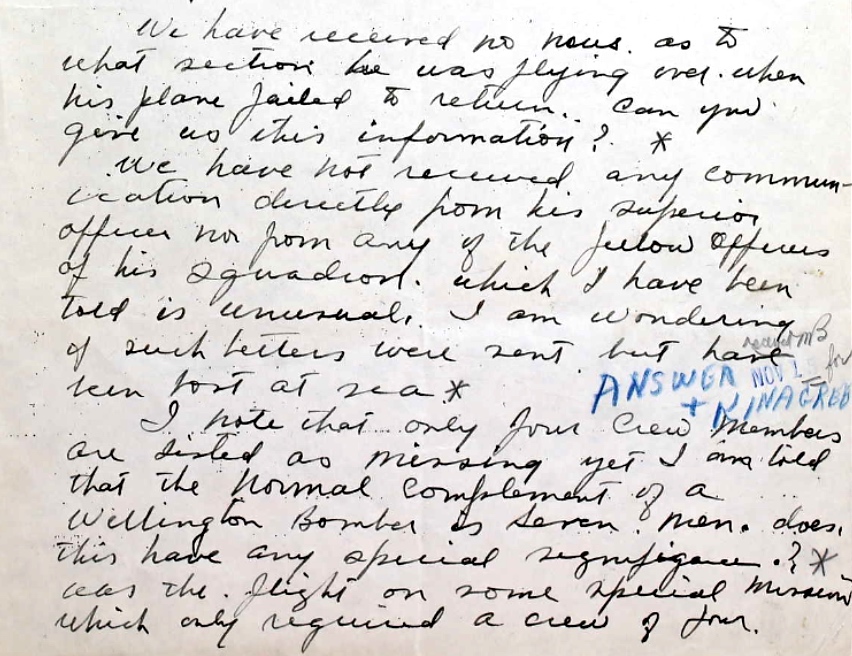 We have received no news. as to
what section he was flying over. when
his plane failed to return.. Can you
give us this information? *
We have not received any commun-
ication directly from his superior
officer nor from any of the fellow officers
of his squadron. which I have been
told is unusual. I am wondering
if such letters were sent but have
been lost at sea *
ANSWER NOV 1
+
I note that only four crew members
are listed as missing yet I am told
that the normal complement of a
Wellington Bomber is seven men. does.
this have any special signifigance.? *
was the. flight on some special mission
which only required a crew of four.